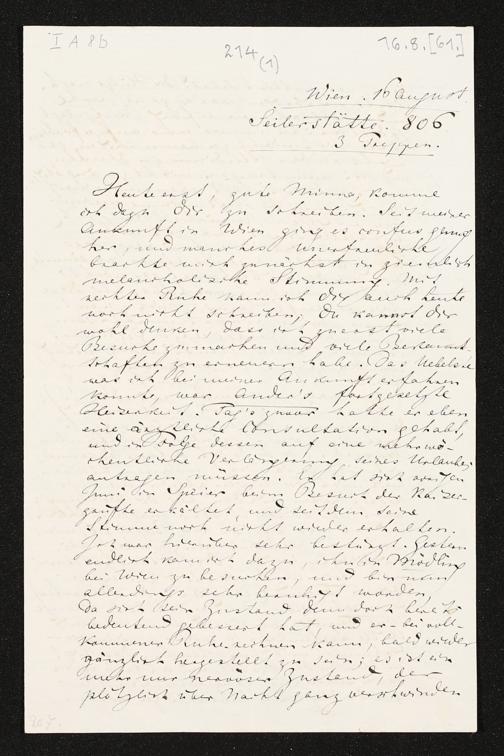 I A 8b
214 (1)
16.8.[61.]
Wien. 16 august.
Seilerstätte. 806
3 Treppen.
Heute erst, gute Minna, komme
ich dazu Dir zu schreiben. Seit meiner
Ankunft in Wien ging es confus genug
her, und manches Unerfreuliche
brachte mich zunächst in ziemlich
melancholische Stimmung. Mit
rechter Ruhe kann ich Dir auch heute
noch nicht schreiben; Du kannst Dir
wohl denken, dass ich zuerst viele
Besuche zu machen und viele Bekannt-
schaften zu erneuern habe. Das Uebelste
was ich bei meiner Ankunft erfahren
konnte, war Ander's fortgesetzte
Heiserkeit. Tag's zuvor hatte er eben
eine ärztliche Consultation gehabt,
und in Folge dessen auf eine mehrwö-
chentliche Verlängerung seines Urlaubes
antragen müssen. Er hat sich anfangs
Juni in Speier beim Besuch der Kaiser-
grüfte erkältet, und seitdem seine
Stimme noch nicht wieder erhalten.
Ich war hierüber sehr bestürzt. Gestern
endlich kam ich dazu, ihn in Mödling
bei Wien zu besuchen, und bin nun
allerdings sehr beruhigt worden,
da sich sein Zustand denn doch bereits
bedeutend gebessert hat, und er - bei voll-
kommener Ruhe rechnen kann, bald wieder
gänzlich hergestellt zu sein; es ist ein
mehr nur nervöser Zustand, der
plötzlich über Nacht ganz verschwinden